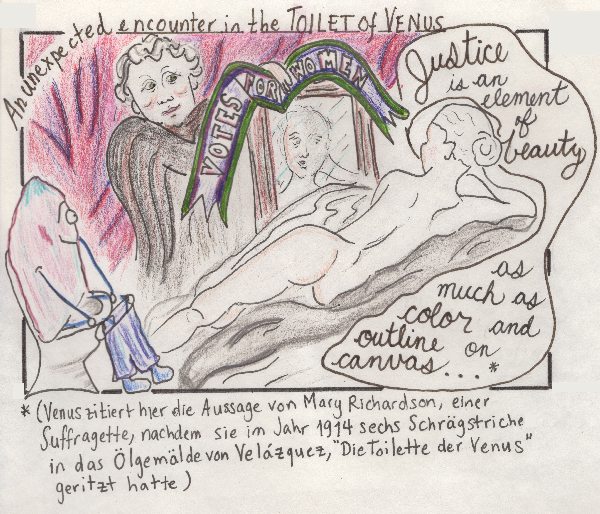 An unexpected encounter in the TOILET of VENUS
VOTES FOR WOMEN
Justice
is an
element
of
beauty
as
much as
color and
outline on
canvas...*
* (Venus zitiert hier die Aussage von Mary Richardson, einer
Suffragette, nachdem sie im Jahr 1914 sechs Schrägstriche
in das Ölgemälde von Velázquez, "Die Toilette der Venus"
geritzt hatte)